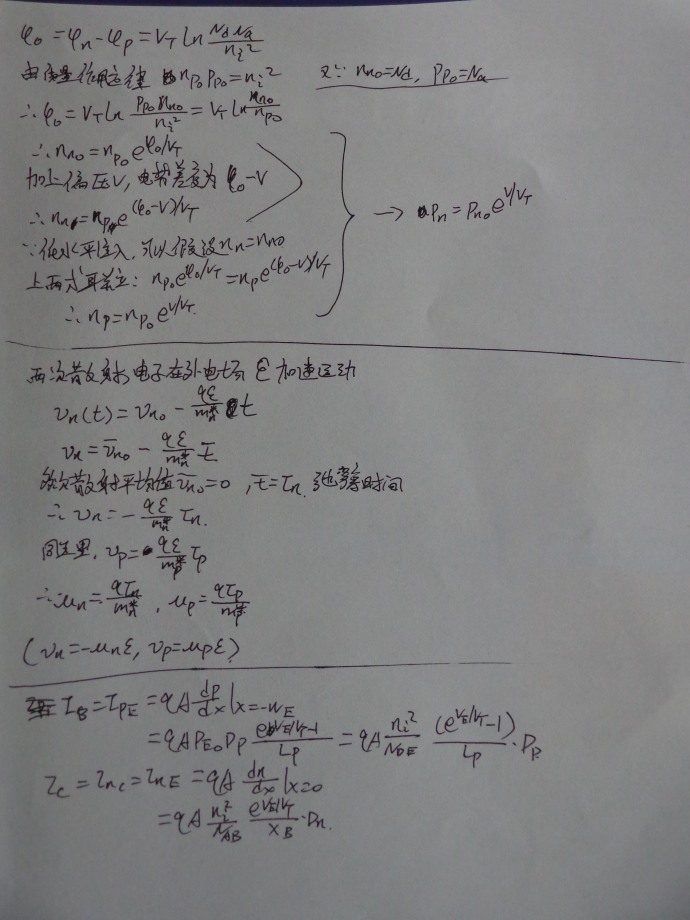 φ₀ = φn − φp = V_T ln NdNa/ni²
由质量作用定律 np₀pp₀ = ni² 又∵ nn₀ = Nd, pp₀ = Na
∴ φ₀ = V_T ln pp₀nn₀/ni² = V_T ln nn₀/np₀
∴ nn₀ = np₀e^(φ₀/V_T)
加上偏压V, 电势差变为 φ₀−V
∴ nn = np e^((φ₀−V)/V_T) → pn = pn₀e^(V/V_T)
∵ 低水平注入, 可以假设 nn = nn₀
上两式联立: np₀e^(φ₀/V_T) = np e^((φ₀−V)/V_T)
∴ np = np₀e^(V/V_T)
两次散射, 电子在外电场 ℰ 加速运动
υn(t) = υn₀ − qℰ/mn* t
υn = ῡn₀ − qℰ/mn* t̄
多次散射平均值 ῡn₀ = 0, t̄ = τn 弛豫时间
∴ υn = − qℰ/mn* τn.
同理, υp = qℰ/mp* τp
∴ μn = qτn/mn*, μp = qτp/mp*
(υn = −μnℰ, υp = μpℰ)
I_B = I_PE = qA dp/dx|x=−W_E
= qA P_E₀ Dp (e^(V_E/V_T)−1)/Lp = qA ni²/N_DE (e^(V_E/V_T)−1)/Lp · Dp
I_C = I_nC = I_nE = qA dn/dx|x=0
= qA ni²/N_AB e^(V_E/V_T)/X_B · Dn.